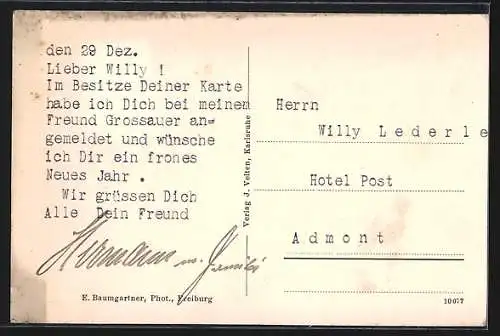 den 29 Dez.
Lieber Willy !
Im Besitze Deiner Karte
habe ich Dich bei meinem
Freund Grossauer an=
gemeldet und wünsche
ich Dir ein frones
Neues Jahr .
Wir grüssen Dich
Alle Dein Freund
Hermann u. Familie
E. Baumgartner, Phot., Freiburg
Verlag J. Velten, Karlsruhe
Herrn
Willy Lederle
Hotel Post
Admont